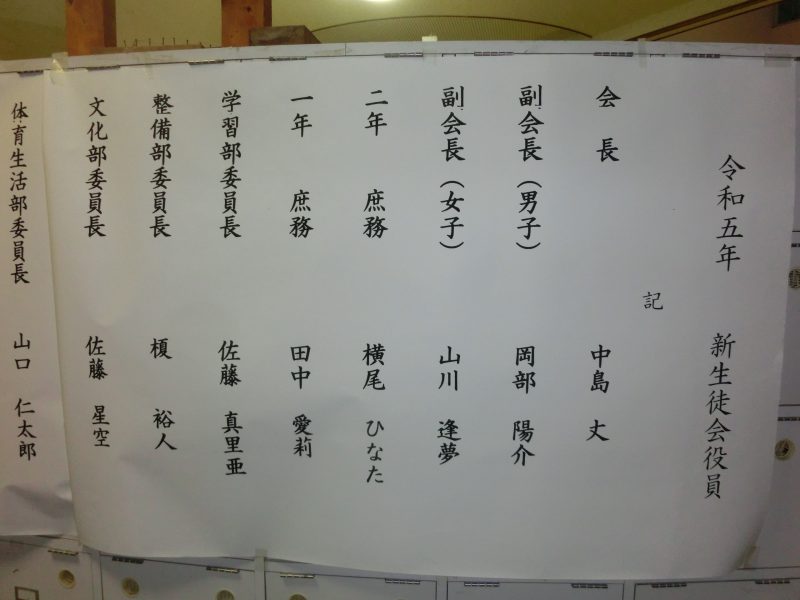 令和五年 新生徒会役員
記
会長 中島 丈
副会長(男子) 岡部 陽介
副会長(女子) 山川 逢夢
二年 庶務 横尾 ひなた
一年 庶務 田中 愛莉
学習部委員長 佐藤 真里亜
整備部委員長 榎 裕人
文化部委員長 佐藤 星空
体育生活部委員長 山口 仁太郎